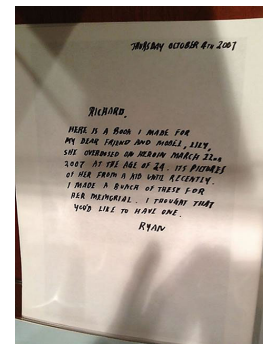 THURSDAY OCTOBER 4TH 2007
RICHARD,
HERE IS A BOOK I MADE FOR
MY DEAR FRIEND AND MODEL, LILY,
SHE OVERDOSED ON HEROIN MARCH 22ND
2007 AT THE AGE OF 24. ITS PICTURES
OF HER FROM A KID UNTIL RECENTLY.
I MADE A BUNCH OF THESE FOR
HER MEMORIAL. I THOUGHT THAT
YOU'D LIKE TO HAVE ONE.
RYAN